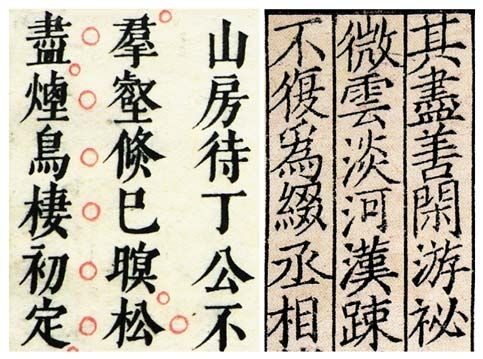 山房待丁公不
羣壑倐巳暝松
盡煙鳥棲初定
其盡善閑游祕
微雲淡河漢踈
不復爲綴丞相